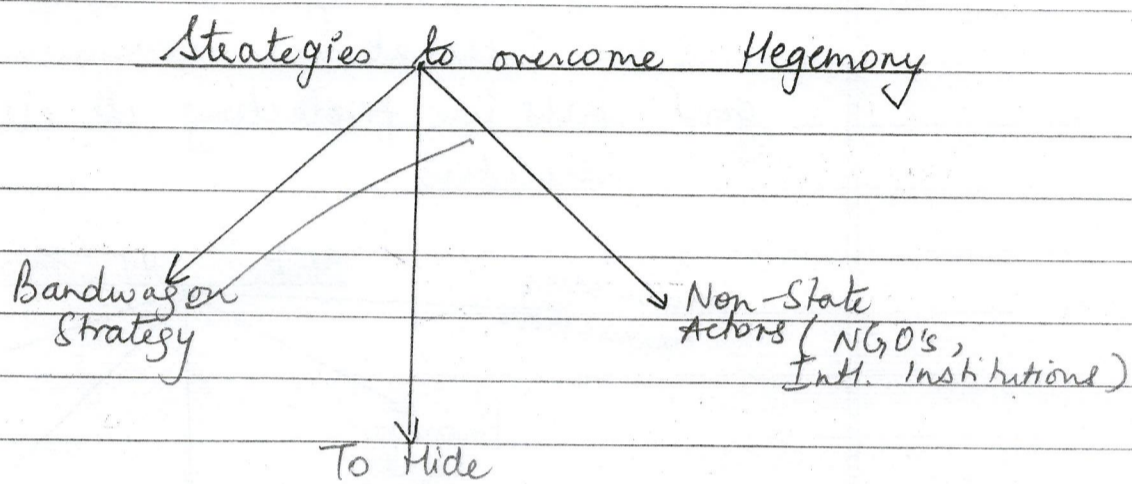 Strategies to overcome Hegemony
Bandwagon
Strategy
Non-State
Actors ( NGO's,
Intl. Institutions)
To Hide